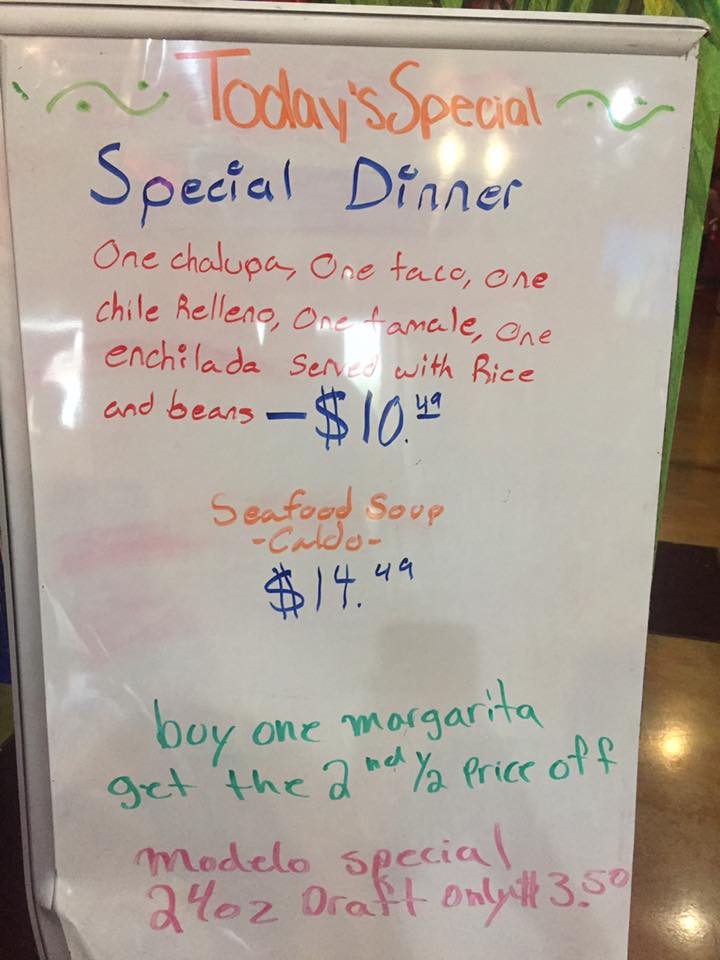 Today's Special
Special Dinner
One chalupa, One taco, one
chile Relleno, One tamale, One
enchilada Served with Rice
and beans — $10.49
Seafood Soup
-Caldo-
$14.49
buy one margarita
get the 2nd 1/2 Price off
modelo special
24oz Draft only $3.50